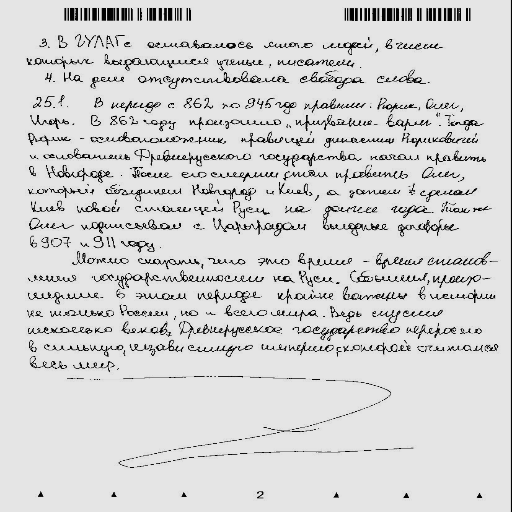 3. В ГУЛАГе оставалось много людей, в числе
которых выдающиеся ученые, писатели.
4. На деле отсутствовала свобода слова.
25.1. В период с 862 по 945 год правили: Рюрик, Олег,
Игорь. В 862 году произошло „призвание варяг". Тогда
Рюрик - основоположник правящей династии Рюриковичей
и основатель Древнерусского государства начал править
в Новгороде. После его смерти стал править Олег,
который объединил Новгород и Киев, а затем сделал
Киев новой столицей Руси. Также
Олег подписывал с Царьградом выгодные договоры
в 907 и 911 году.
Можно сказать, что это время - время станов-
ления государственности на Руси. События, произо-
шедшие в этом периоде крайне важны в истории
не только России, но и всего мира. Ведь спустя
несколько веков, Древнерусское государство переросло
в сильную, независимую империю, с которой считался
весь мир.
2